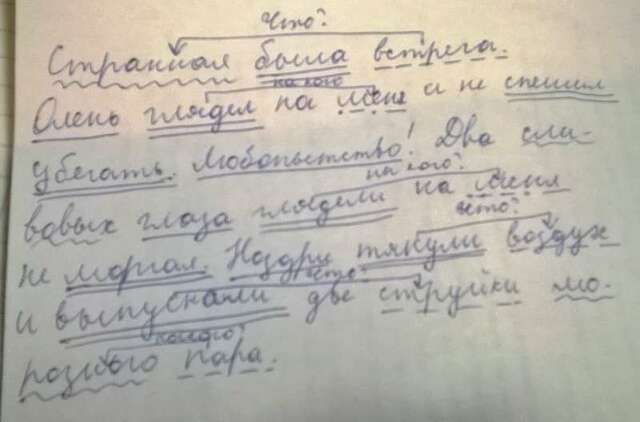 Что?
Странная была встреча.
на кого
Олень глядел на меня и не спешил
убегать. Любопытство! Два сли-
на кого?
вовых глаза глядели на меня
что?
не моргая. Ноздри тянули воздух
что?
и выпускали две струйки мо-
какого?
розного пара.